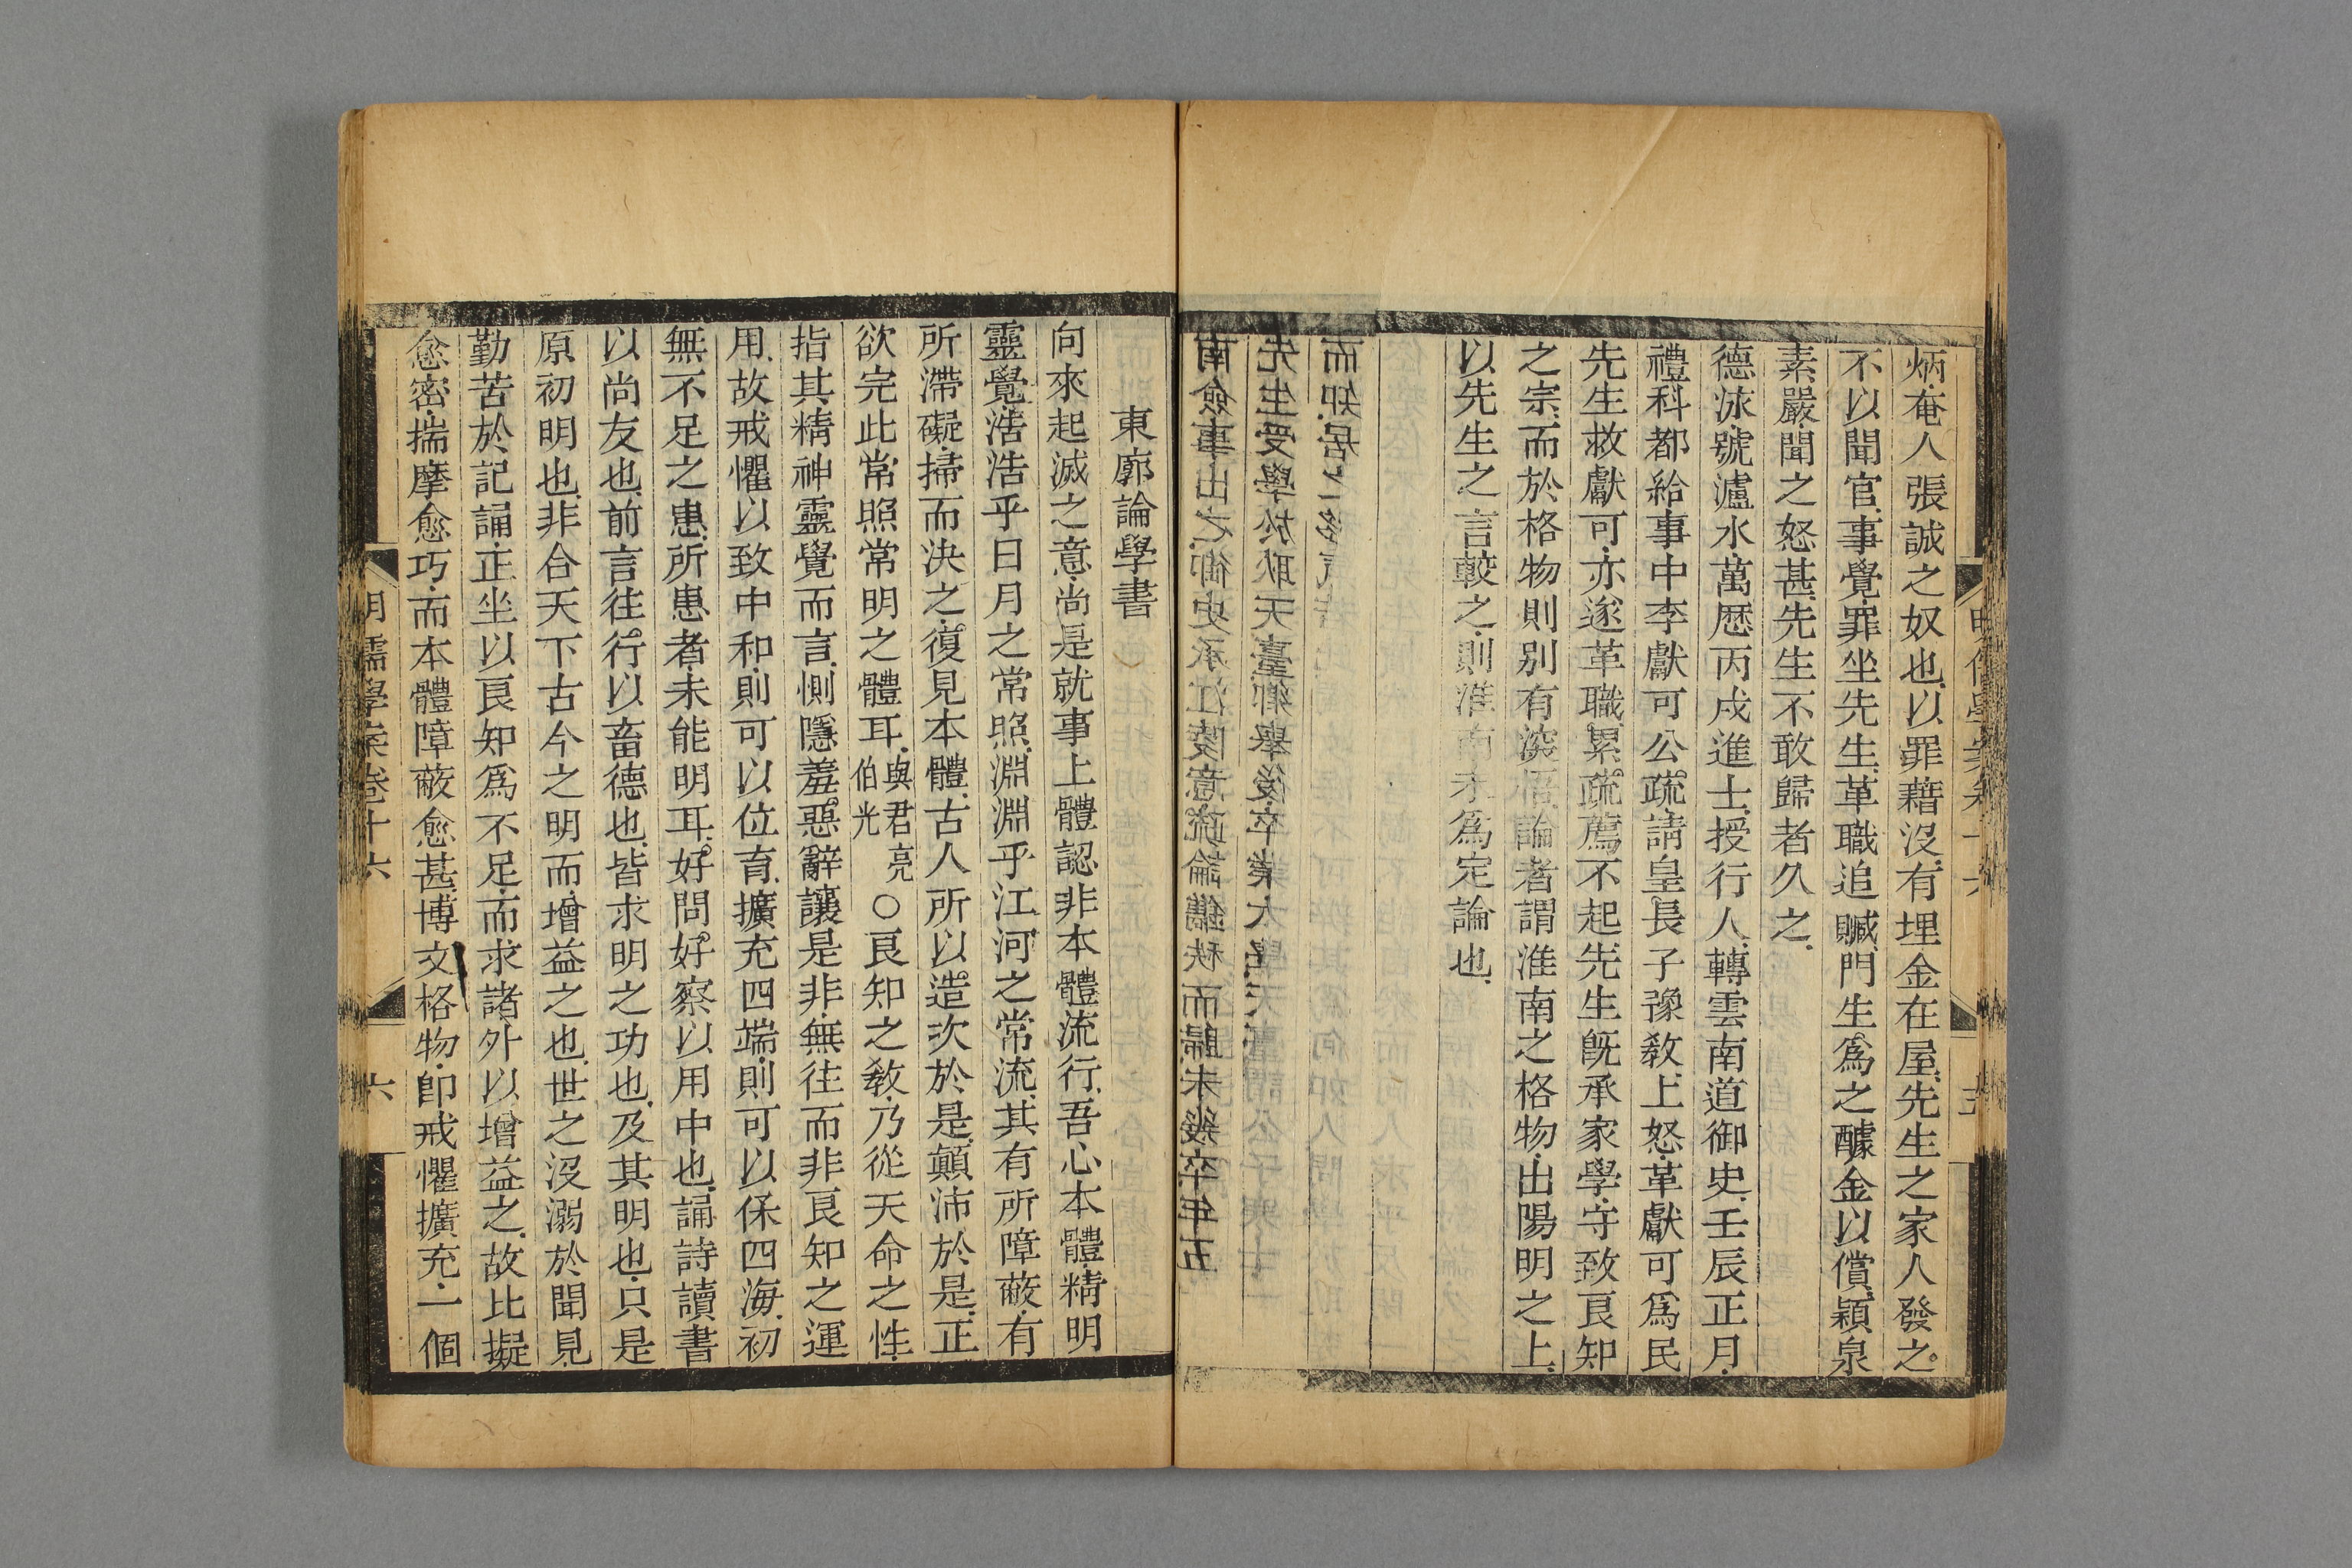 炳菴人張誠之奴也以罪藉沒有埋金在屋先生之家人發之
不以聞官事覺罪坐先生革職追贓門生爲之醵金以償穎泉
素嚴聞之怒甚先生不敢歸者久之
德泳號瀘水萬歷丙戌進士授行人轉雲南道御史壬辰正月
禮科都給事中李獻可公疏請皇長子豫敎上怒革獻可爲民
先生救獻可亦遂革職累疏薦不起先生旣承家學守致良知
之宗而於格物則別有深悟論者謂淮南之格物出陽明之上
以先生之言較之則淮南未爲定論也
東廓論學書
向來起滅之意尚是就事上體認非本體流行吾心本體精明
靈覺浩浩乎日月之常照淵淵乎江河之常流其有所障蔽有
所滯礙掃而決之復見本體古人所以造次於是顛沛於是正
欲完此常照常明之體耳與君亮伯光〇良知之敎乃從天命之性
指其精神靈覺而言惻隱羞惡辭讓是非無往而非良知之運
用故戒懼以致中和則可以位育擴充四端則可以保四海初
無不足之患所患者未能明耳好問好察以用中也誦詩讀書
以尚友也前言往行以畜德也皆求明之功也及其明也只是
原初明也非合天下古今之明而增益之也世之沒溺於聞見
勤苦於記誦正坐以良知爲不足而求諸外以增益之故比擬
愈密揣摩愈巧而本體障蔽愈甚博文格物卽戒懼擴充一個
明儒學案卷十六
六